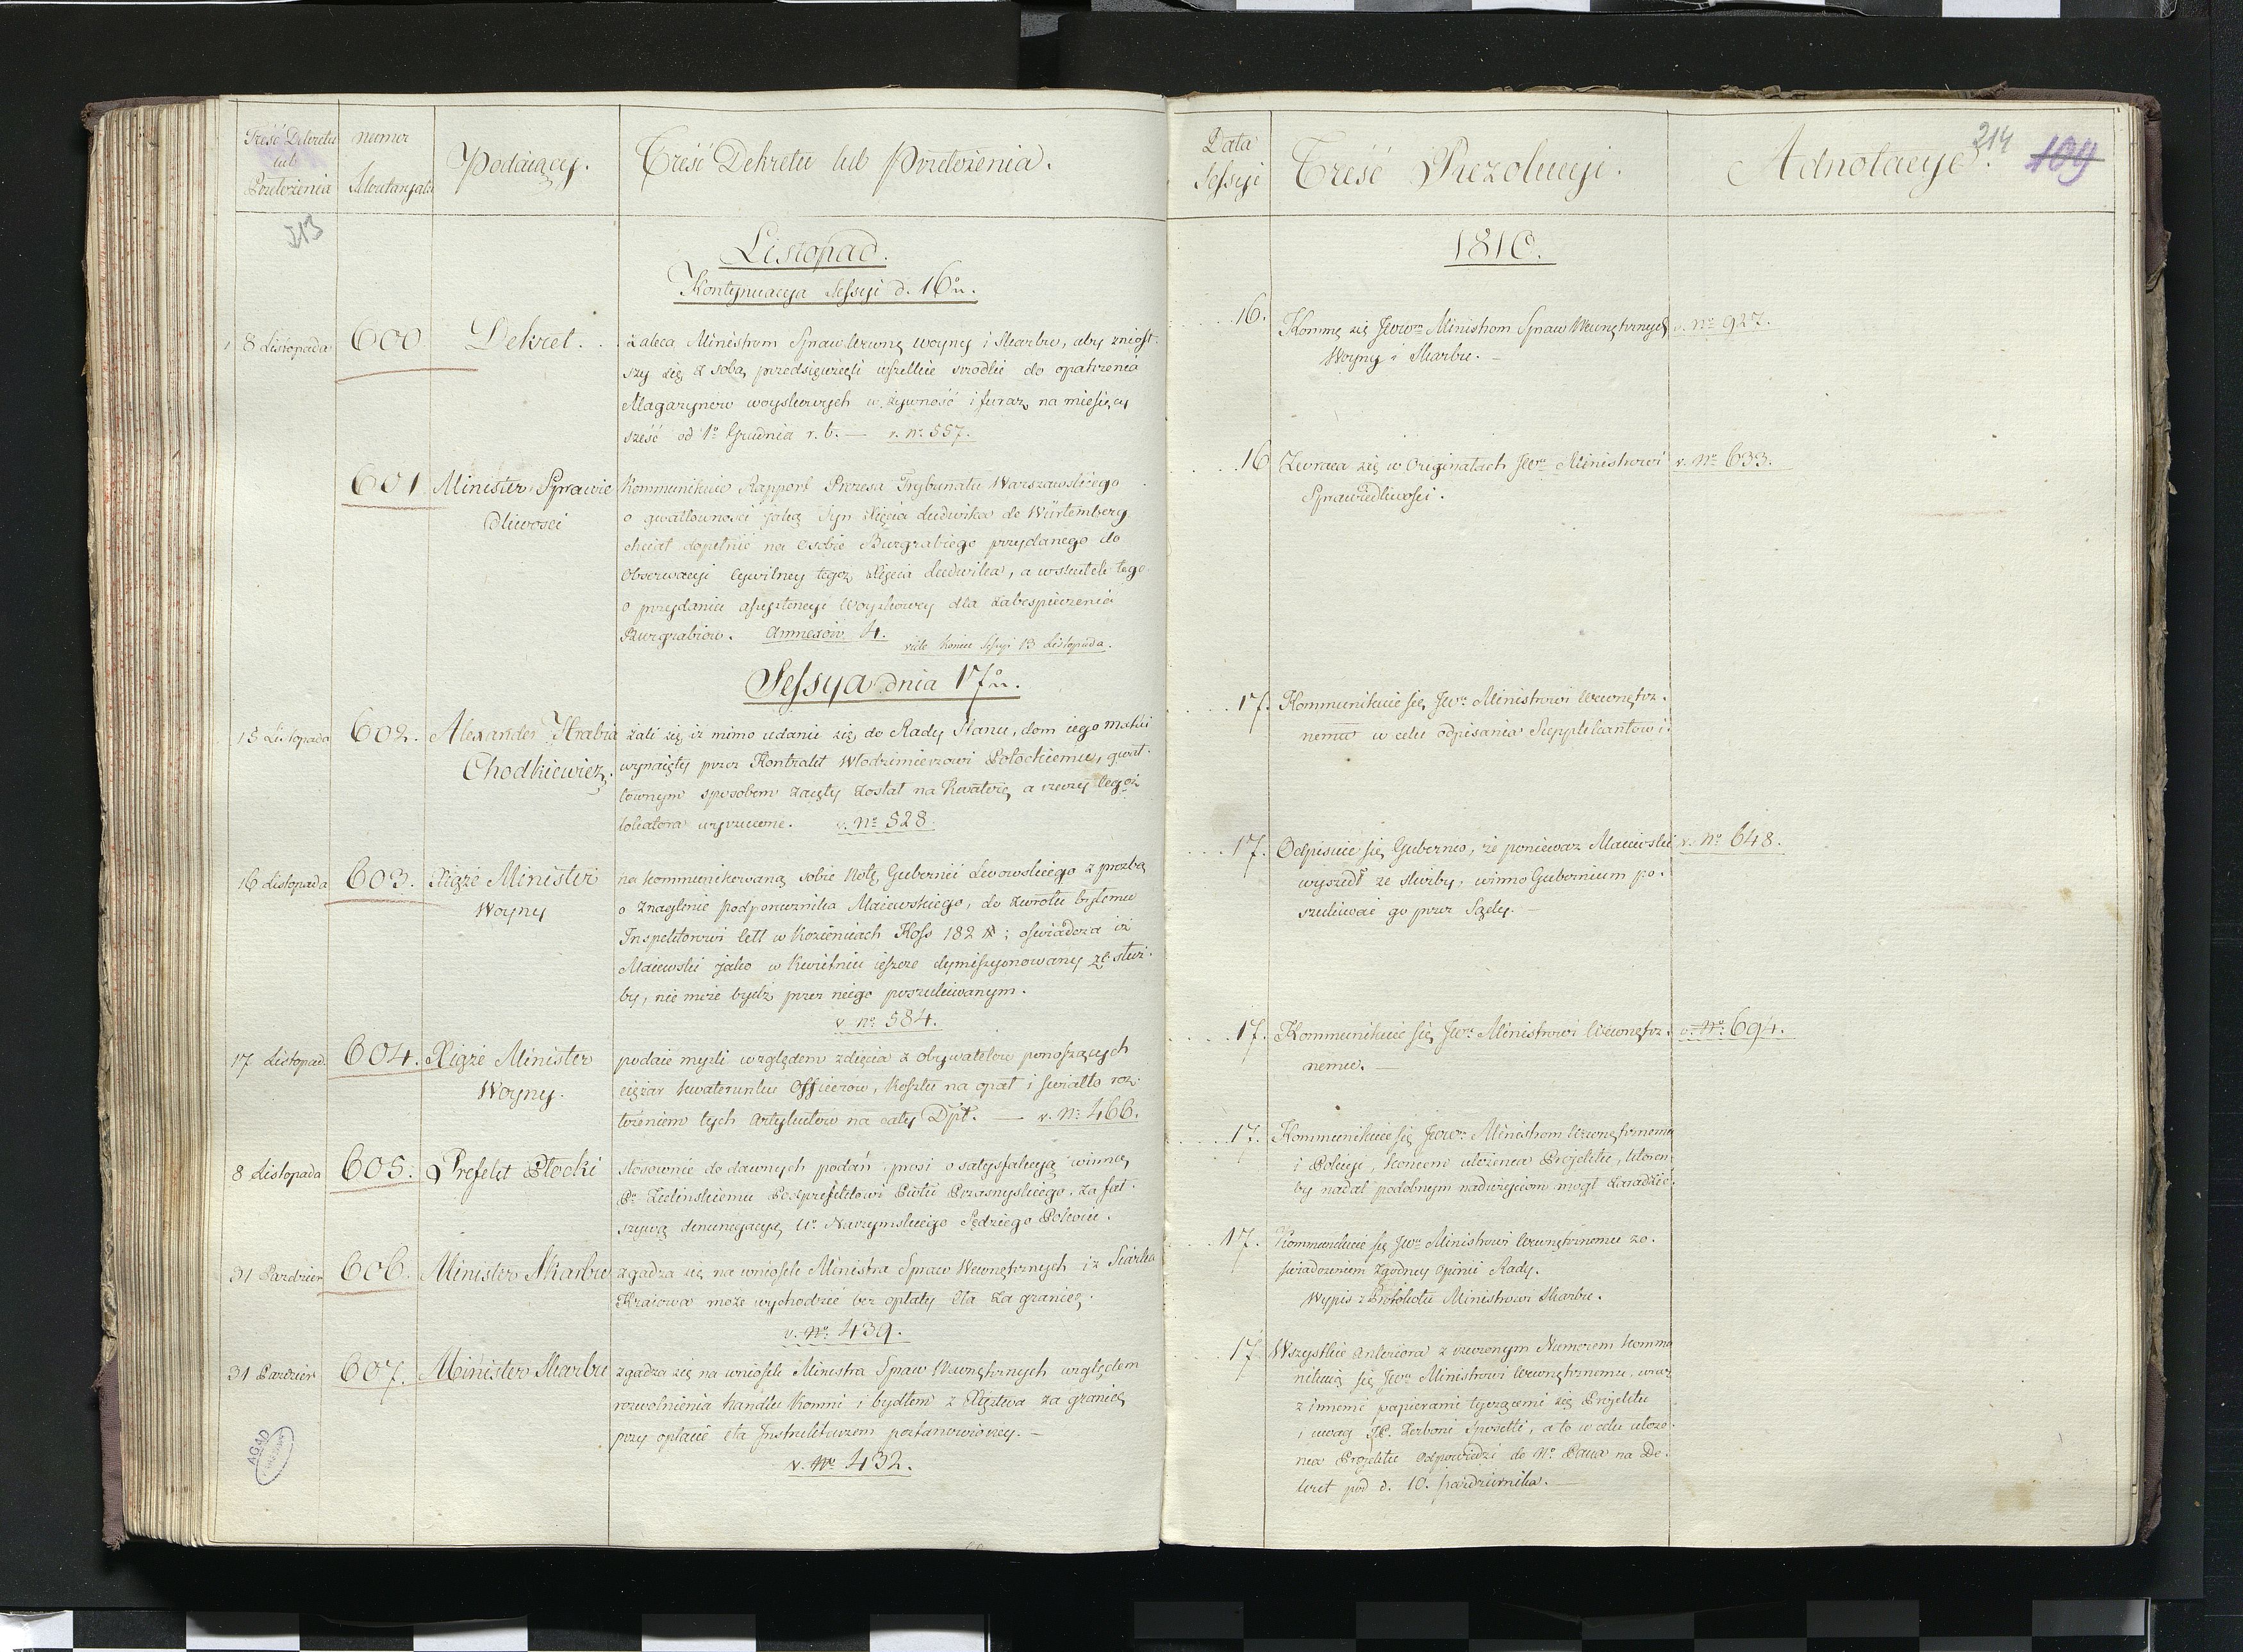 Treść Dekretu
lub
Przełożenia
numer
Sekretaryatu
Podaiący.
Treść Dekretu lub Przełożenia.
213
Listopad.
Kontynuacya Sessyi d. 16º n.
8 Listopada
600
Dekret.
Zaleca Ministrom Spraw Wewnę Woyny i Skarbu, aby zniosł-
szy się z sobą przedsięwzięli wszelkie srzodki do opatrzenia
Magazynow woyskowych w żywność i furaż na miesięcy
sześć od 1º Grudnia r. b. — v. Nº 557.
601
Minister Sprawie
dliwosci
Kommunikuie Rapport Prezesa Trybunału Warszawskiego
o gwałtownosci jaką Syn Xięcia Ludwika de Würtemberg
chciał dopełnić na Osobie Burgrabiego przydanego do
Obserwacyi Cywilney tegoż Xięcia Ludwika, a wskutek tego
o przydanie assystencyi Woyskowey dla zabespieczenia
Burgrabiow. Annexów 4.
vide koniec Sessyi 13 Listopada.
Sessya dnia 17º n.
15 Listopada
602.
Alexander Hrabia
Chodkiewicz.
żali się iż mimo udanie się do Rady Stanu, dom iego Matki
wynaięty przez Kontrakt Włodzimierzowi Potockiemu, gwał-
townym sposobem zaięty został na Kwaterę a rzeczy tegoż
lokatora wyrzucone. v. Nº 528.
16 Listopada
603.
Xiąże Minister
Woyny
na kommunikowaną sobie Notę Gubernii Lwowskiego z prozbą
o znaglenie podporucznika Maiewskiego, do zwrotu byłemu
Inspektorowi Cett w Kozienicach Koss 182 #; oswiadcza iż
Maiewski jako w Kwietniu ieszcze dymissyonowany ze służ-
by, nie może bydź przez niego poszukiwanym.
v. Nº 584.
17 Listopad.
604.
Xiąże Minister
Woyny.
podaie mysli względem zdięcia z obywatelow ponoszących
ciężar kwaterunku Officerow, kosztu na opał i swiatło roz-
łożeniem tych artykułow na cały Dpt. — v. Nº 466.
8 Listopada
605.
Prefekt Płocki
stosownie do dawnych podań prosi o satysfakcyą winną
Pº Zielinskiemu Podprefektowi Pwtu Przasnyskiego, za fał-
szywą denuncyacyę Uº Narzymskiego Sędziego Pokoiu.
31 Pazdzier
606.
Minister Skarbu
zgadza się na wniosek Ministra Spraw Wewnętrznych iż Siarka
Kraiowa może wychodzić bez opłaty Cła za granicę.
v. Nº 439.
31 Pazdzier
607.
Minister Skarbu
zgadza się na wniosek Ministra Spraw Wewnętrznych względem
rozwolnienia handlu końmi i bydłem z Xięstwa za granicę
przy opłacie cła Instruktarzem postanowioney. —
v. Nº 432.
AGAD
Data
Sessyi
Treść Rezolucyi.
Adnotacye.
214
109
1810.
16.
Kommę się Jwwm Ministrom Spraw Wewnętrznych
Woyny i Skarbu. —
v. Nº 927.
16
Zwraca się w Originałach Jwu Ministrowi
Sprawiedliwosci.
v. Nº 633.
17.
Kommunikuie się Jwu Ministrowi Wewnętrz-
nemu w celu odpisania Supplikantowi.
17.
Odpisuie się Gubernio, że ponieważ Maiewski
wyszedł ze służby, winno Gubernium po-
szukiwać go przez Sądy. —
v. Nº 648.
17.
Kommunikuie się Jwu Ministrowi Wewnętrz-
nemu. —
v. Nº 694.
17.
Kommunikuie się Jwwm Ministrom Wewnętrznemu
i Policyi, końcem ułożenia Projektu, któren-
by nadal podobnym nadużyciom mógł zaradzić.
17.
Kommunikuie się Jwu Ministrowi Wewnętrznemu ze-
swiadczeniem zgodney Opinii Rady.
Wypis z Protokołu Ministrowi Skarbu.
17
Wszystkie anteriora z rzeczonym Numerem kommu
nikuią się Jwu Ministrowi Wewnętrznemu, wraz
z innemi papierami tyczącemi się Projektu
i uwag JP. Zerboni Sposetti, a to w celu ułoże-
nia Projektu Odpowiedzi do Nº Pana na De-
kret pod d. 10. pazdziernika. —